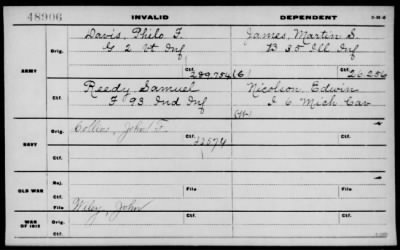 48906 INVALID DEPENDENT
Davis, Philo F. James, Martin S.
Orig. G 2 Vt Inf B 35 Ill Inf
ARMY Ctf. 289,754 (6) Ctf. 26256
Reedy, Samuel Nicolson, Edwin
Ctf. F 93 Ind Inf I 6 Mich Cav
Collins, John F.
Orig.
NAVY 22574
Ctf.
Rej.
OLD WAR File File
Ctf.
Wiley, John
WAR OF 1812 Orig. Ctf. Ctf.